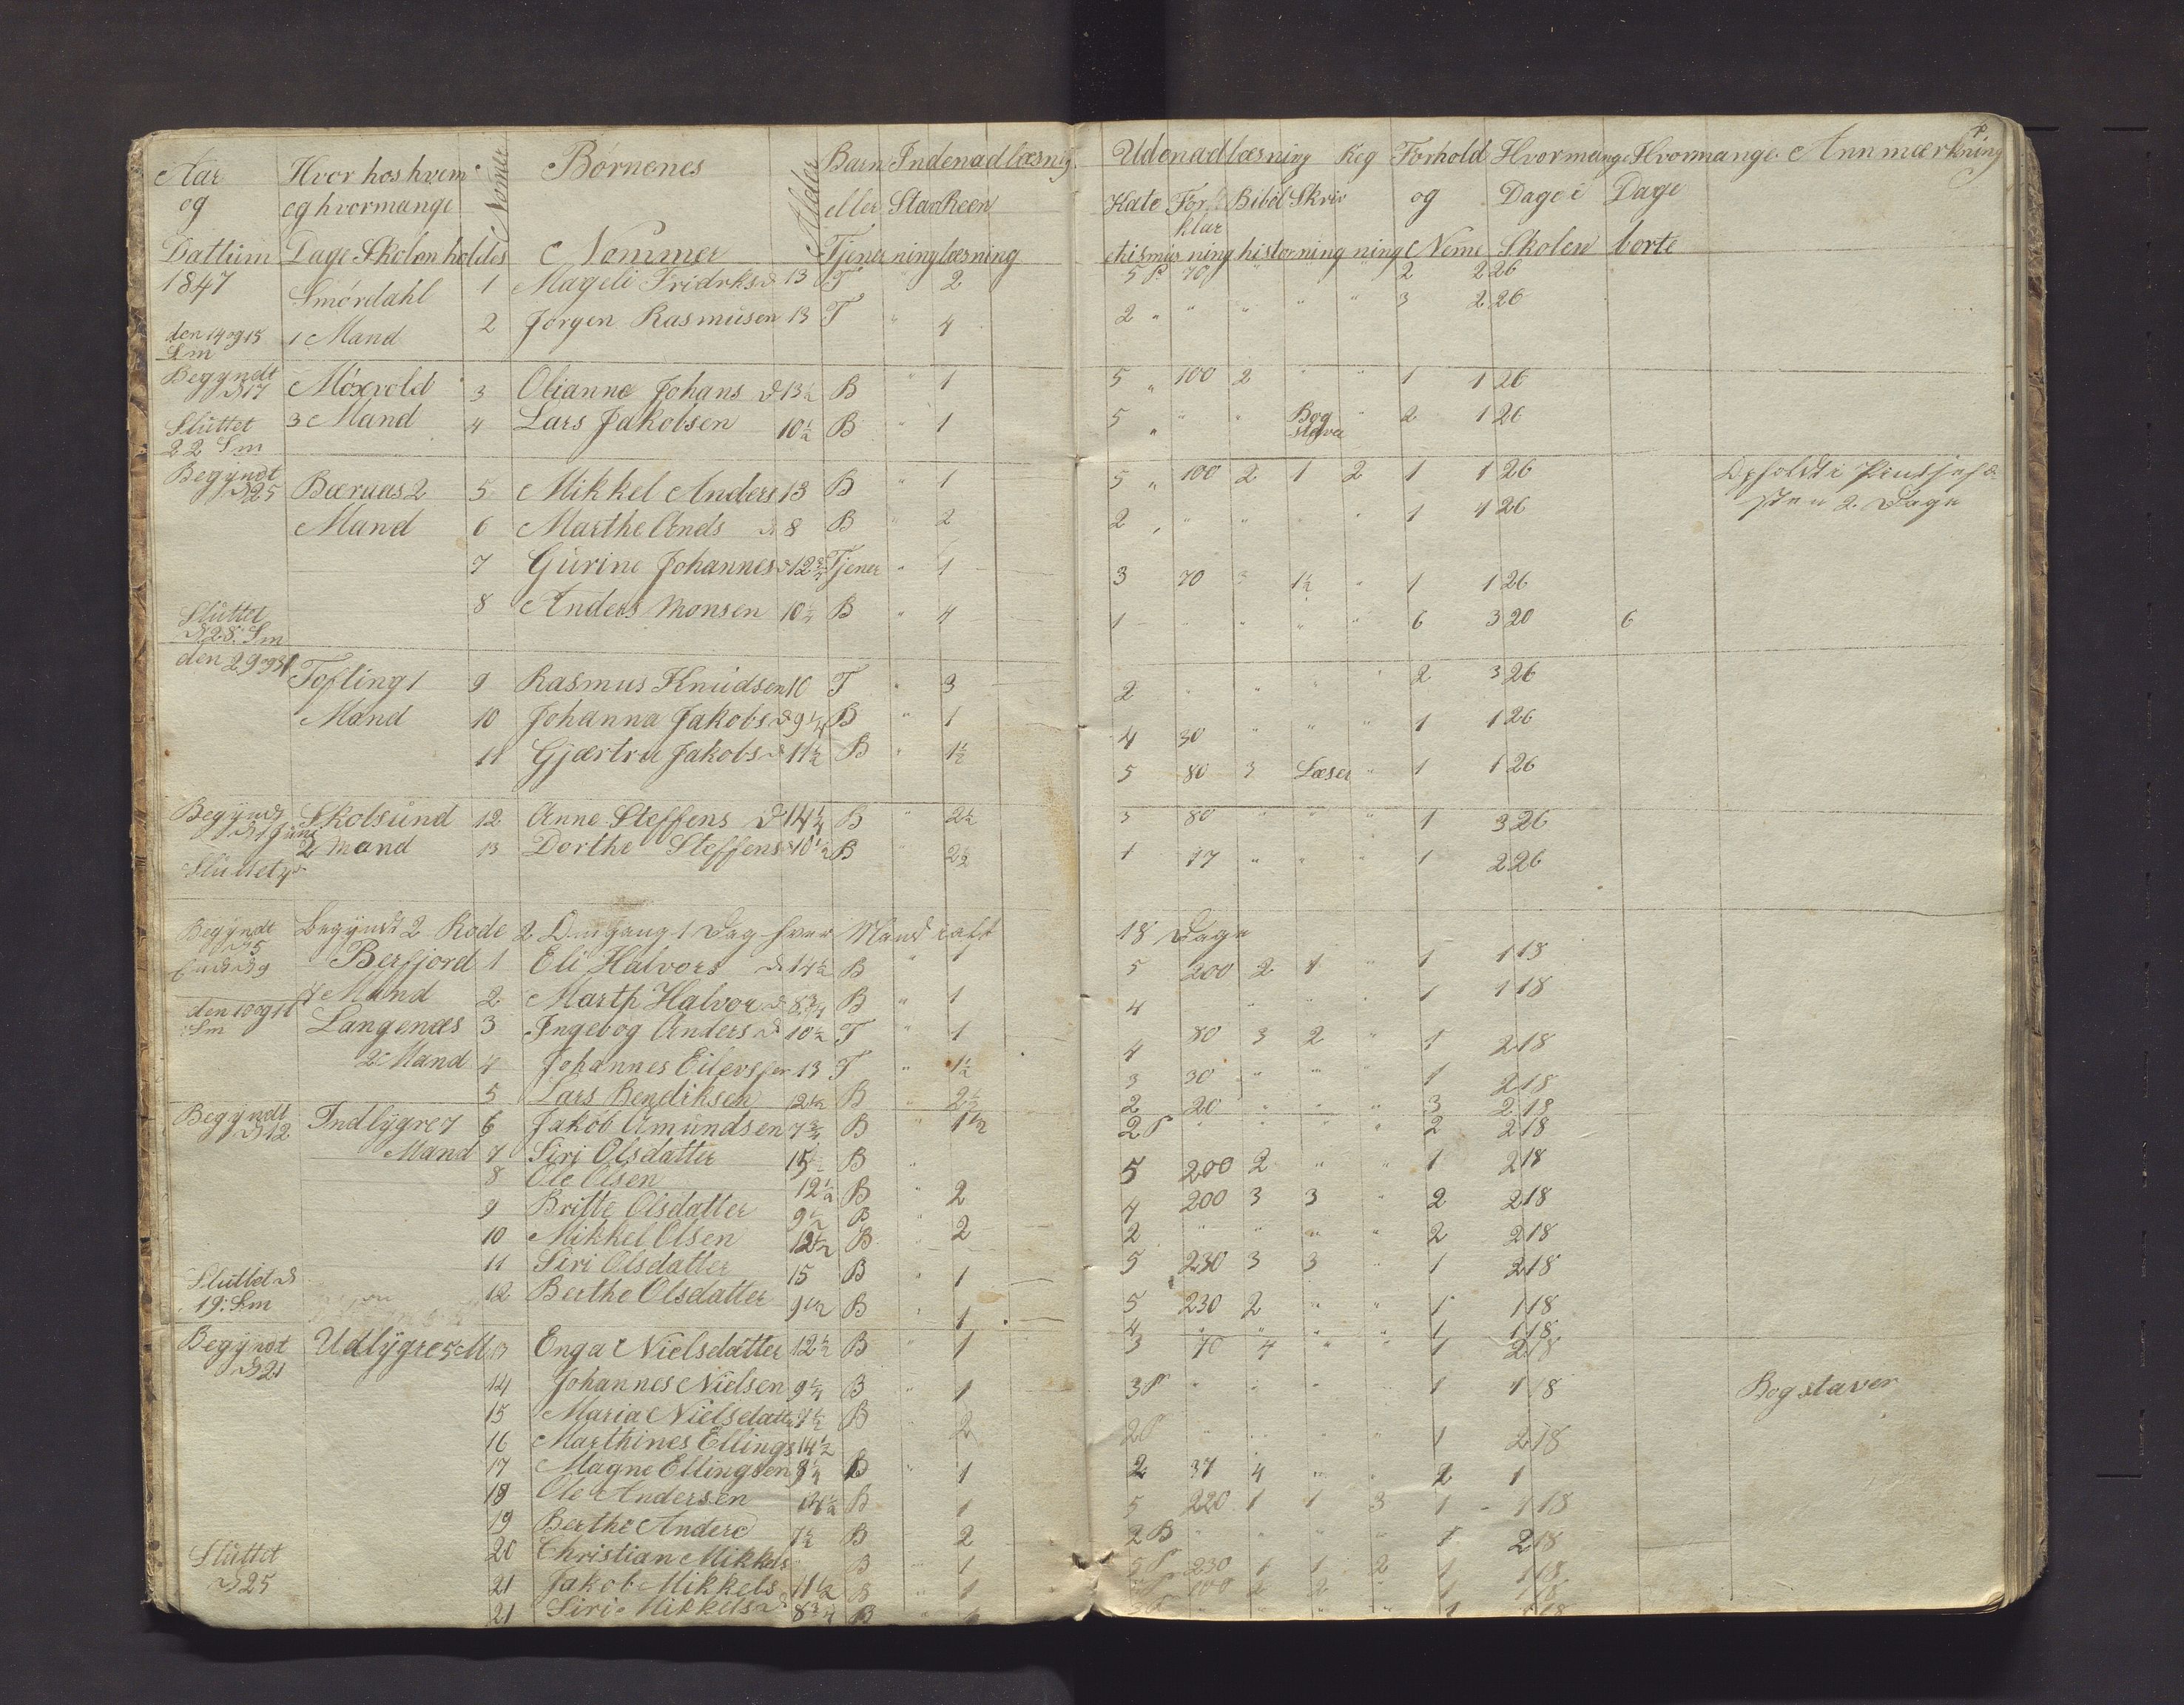 Aar Hvor hos hvem Nomer Børnenes Alder Barn Indenadlæsnig. Udenadlæsning Reg Forhold Hvormange Hvormange Annmærkning
og og hvormange eller Stav Reen Kate For Bibel Skriv og Dage i Dage
klar
Dattum Dage Skolen holdes Nommer Tjener ning læsning ekismus ning histor ning ning Neme Skolen borte
1847 Smørdahl 1 Mageli Fridrksd 13 T " 2 5 P 70 " 2 2 26
den 14 og 15 Sm 1 Mand 2 Jørgen Rasmusen 13 T " 4 2 " " " " " 3 2 26
Begyndt d 17 Møxvold 3 Olianne Johans d 13½ B " 1 5 " 100 2 " " 1 1 26
Sluttet 22 Sm 3 Mand 4 Lars Jakobsen 10½ B " 1 5 " " " Bog staver " 2 1 26
Begyndt d 25 Bæruas 2 5 Mikkel Anders 13 B " 1 5 " 100 2 1 2 1 1 26
Mand 6 Marthe Ands d 8 B " 2 2 " " " " 1 1 26 2 Dage
7 Gurine Johannesd 12¾ Tjener " 1 3 70 3 1½ " 1 1 26
Sluttet d 28 Sm 8 Anders Monsen 10½ B " 4 1 " " " " 6 3 20 6
den 29 og 31 Tofling 1 9 Rasmus Knudsen 10 T " 3 2 " " " " 2 3 26
Mand 10 Johanna Jakobs d 9¼ B " 1 4 30 " " " 1 1 26
11 Gjærtru Jakobs d 11½ B " 1½ 5 80 3 Læser " 1 1 26
Begynd d 1 Juni Skotsund 12 Anne Steffens d 14¼ B " 2½ 3 80 " " " 1 3 26
Sluttet 2 Mand 13 Dorthe Steffens d 10½ B " 2½ 1 17 " " " 1 2 26
Begyndt d 5 Begyndt 2 Rode 2 Omgang 1 Dag hver Mand i alt 18 Dage
d 9 Berfjord 1 Eli Halvors d 14½ B " 1 5 200 2 1 " 1 1 18
7 Mand 2 Marth Halvor d 8¾ B " 1 4 " " " " 1 1 18
den 10 og 11 Sm Langenæs 3 Ingebog Anders d 10½ T " 1 4 80 3 2 " 1 2 18
2 Mand 4 Johannes Eilevsen 13 T " 1½ 3 30 " " " 1 2 18
5 Lars Bendiksen 12½ B " 2½ 2 20 " " " 3 2 18
Begyndt d 12 Indlygre 7 6 Jakob Amundsen 7¾ B " 1½ 2 P " " " " 2 2 18
Mand 7 Siri Olsdatter 15½ B " 5 200 2 " " 1 2 18
8 Ole Olsen 12½ B " 2 4 200 3 3 " 2 2 18
9 Britte Olsdatter 9½ B " 2 2 " " " " 2 2 18
10 Mikkel Olsen 12½ B " 5 230 3 3 " 1 2 18
11 Siri Olsdatter 15 B " 1 5 230 2 " " 1 1 18
Sluttet d 19. Sm 12 Berthe Olsdatter 9½ B " 1 4 " " " " 1 1 18
Begyndt d 21 Udlygre 5 M 13 Enga Nielsdatter 12½ B " 1 3 70 4 " " 1 2 18
14 Johannes Nielsen 9¼ B " 1 3 P " " " " 1 1 18 Bogstaver
15 Maria Nielsdatt 7½ B " 2 2 P " " " " 1 2 18
16 Marthines Ellings 14½ 2 37 4 " " 2 1
17 Magne Ellingsen 8¼ B " 1 5 220 1 1 3 1 1 18
18 Ole Andersen 14½ B 1 2 B " " " " 1 2 18
19 Berthe Anderd 7½ B 2 5 P 230 1 1 2 1 1 18
Sluttet d 25 20 Christian Mikkels B " 1 100 2 2 " 1 1 18
21 Jakob Mikkels 11½ B " 1 1 18
21 Siri Mikkelsd 8¾ B